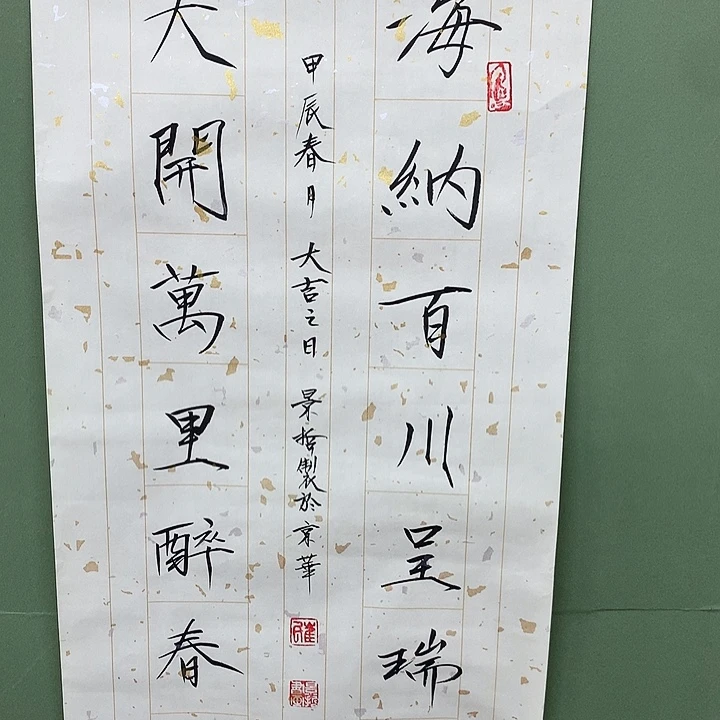 海納百川呈瑞
甲辰春月 大吉之日 景哲製於京華
天開萬里醉春